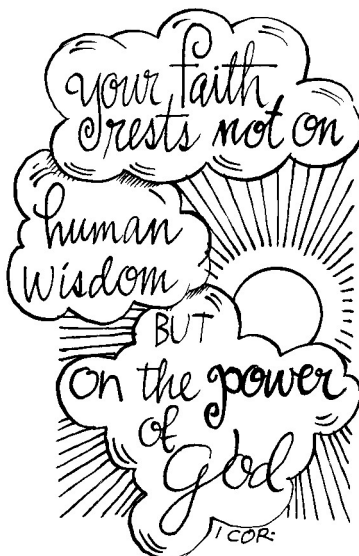 your faith
rests not on
human
wisdom
BUT
on the power
of
God
1 COR: